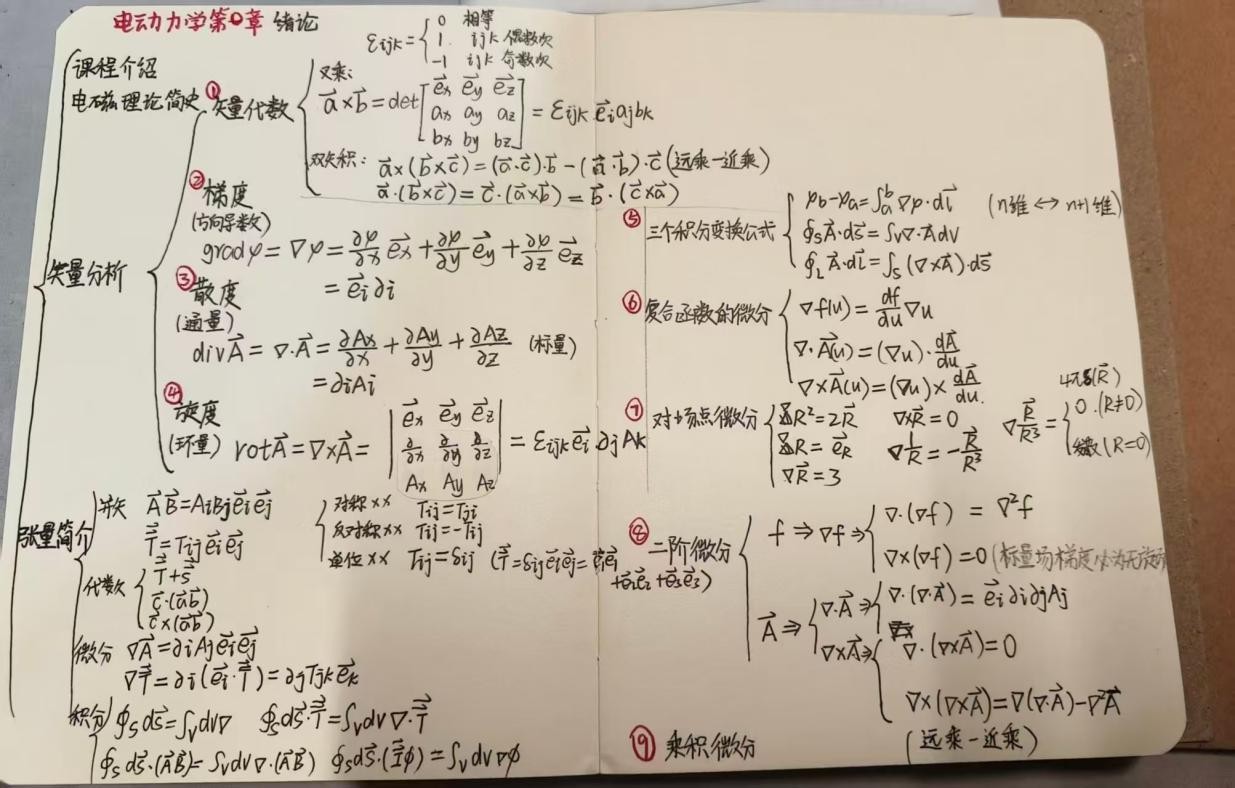 电动力学第0章 绪论
εijk = { 0 相等
1. ijk 偶数次
-1 ijk 奇数次
课程介绍
电磁理论简史
矢量分析
① 矢量代数
叉乘:
a⃗×b⃗ = det [e⃗x e⃗y e⃗z
ax ay az
bx by bz] = εijk e⃗i aj bk
双矢积: a⃗×(b⃗×c⃗) = (a⃗·c⃗)·b⃗ - (a⃗·b⃗)·c⃗ (远乘-近乘)
a⃗·(b⃗×c⃗) = c⃗·(a⃗×b⃗) = b⃗·(c⃗×a⃗)
② 梯度
(方向导数)
gradφ = ∇φ = ∂φ/∂x e⃗x + ∂φ/∂y e⃗y + ∂φ/∂z e⃗z
= e⃗i ∂i
③ 散度
(通量)
divA⃗ = ∇·A⃗ = ∂Ax/∂x + ∂Ay/∂y + ∂Az/∂z (标量)
= ∂iAi
④ 旋度
(环量) rotA⃗ = ∇×A⃗ = | e⃗x e⃗y e⃗z
∂/∂x ∂/∂y ∂/∂z
Ax Ay Az | = εijk e⃗i ∂j Ak
张量简介
并矢 A⃗B⃗ = AiBj e⃗i e⃗j
T⃗⃗ = Tij e⃗i e⃗j
对称×× Tij = Tji
反对称×× Tij = -Tij
单位×× Tij = δij (T⃗⃗ = δij e⃗i e⃗j = e⃗1e⃗1
+e⃗2e⃗2+e⃗3e⃗3)
代数 T⃗⃗+s⃗
c⃗·(a⃗b⃗)
c⃗×(a⃗b⃗)
微分 ∇A⃗ = ∂iAj e⃗i e⃗j
∇T⃗⃗ = ∂i(e⃗i·T⃗⃗) = ∂jTjk e⃗k
积分 ∮s ds⃗ = ∫v dv∇ ∮s ds⃗·T⃗⃗ = ∫v dv ∇·T⃗⃗
∮s ds⃗·(A⃗B⃗) = ∫v dv ∇·(A⃗B⃗) ∮s ds⃗·(I⃗⃗φ) = ∫v dv ∇φ
⑤ 三个积分变换公式
φb-φa = ∫ₐᵇ ∇φ·dl⃗ (n维 ↔ n+1维)
∮s A⃗·ds⃗ = ∫v ∇·A dv
∮L A⃗·dl⃗ = ∫s (∇×A⃗)·ds⃗
⑥ 复合函数的微分
∇f(u) = df/du ∇u
∇·A⃗(u) = (∇u)·dA⃗/du
∇×A⃗(u) = (∇u)×dA⃗/du.
⑦ 对场点微分
∇R² = 2R⃗ ∇×R⃗ = 0
∇R = e⃗R ∇1/R = -R⃗/R³
∇R⃗ = 3
∇R⃗/R³ = { 0.(R≠0)
(R=0)
⑧ 二阶微分
f ⇒ ∇f ⇒ ∇·(∇f) = ∇²f
∇×(∇f) = 0 (标量场梯度必为无旋
A⃗ ⇒ ∇·A⃗ ⇒ ∇·(∇·A⃗) = e⃗i ∂i∂jAj
∇×A⃗ ⇒ ∇·(∇×A⃗) = 0
∇×(∇×A⃗) = ∇(∇·A⃗)-∇²A⃗
(远乘-近乘)
⑨ 乘积微分